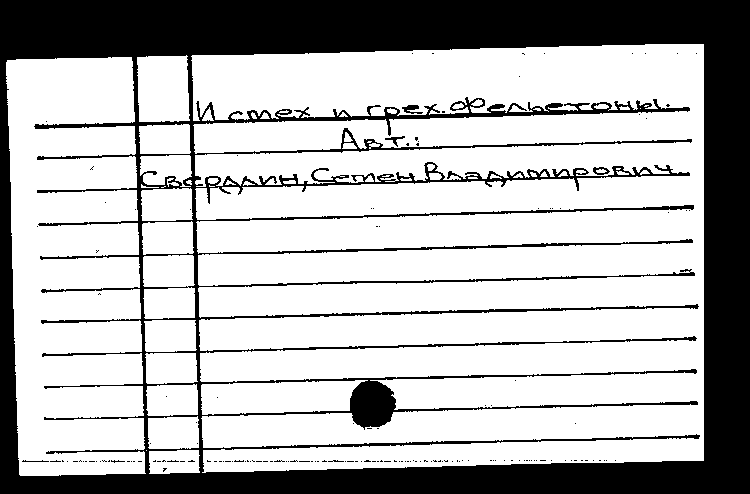 И смех и грех. Фельетоны.
Авт.:
Свердлин, Семен Владимирович.